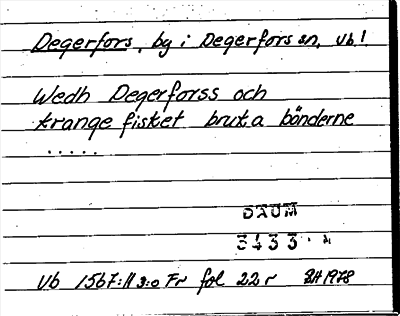 Degerfors, by i Degerfors sn, Vb!
Wedh Degerforss och
trange fisket bruka bönderne
.....
DAUM
3433
Vb 1567:11 3:o Fr fol 22 r SH 1978